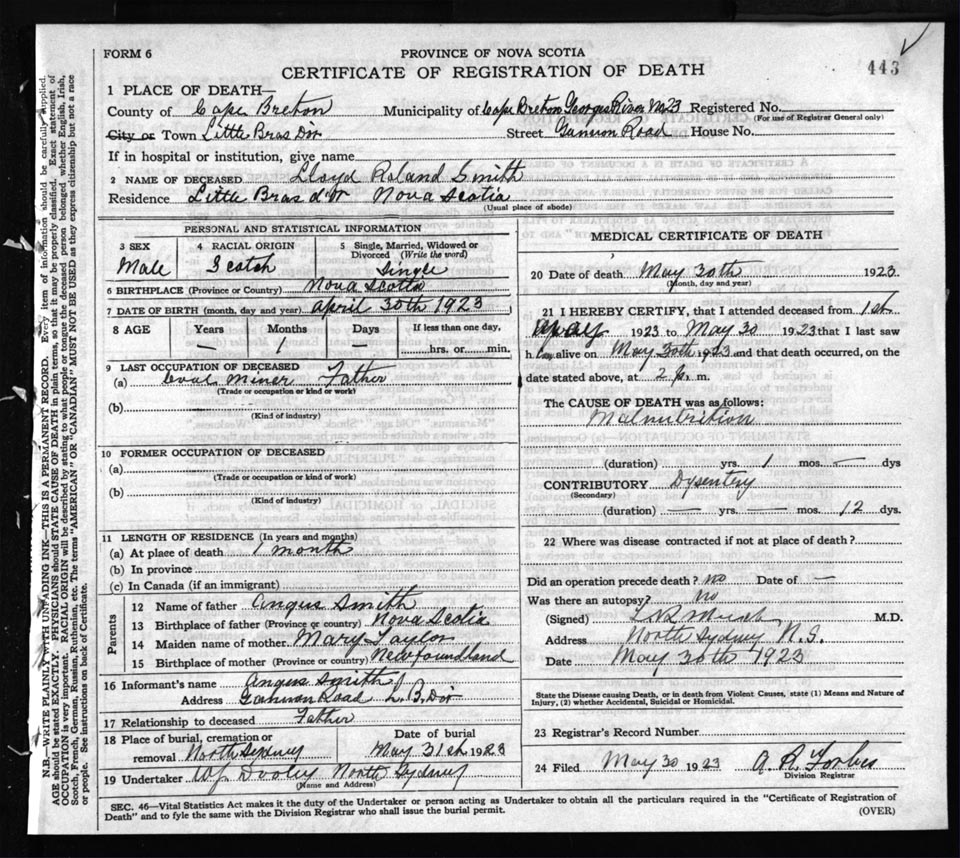 FORM 6
PROVINCE OF NOVA SCOTIA
CERTIFICATE OF REGISTRATION OF DEATH
443
1 PLACE OF DEATH—
County of Cape Breton Municipality of Cape Breton Georges River No 23 Registered No.
(For use of Registrar General only)
City or Town Little Bras Dor Street Gannon Road House No.
If in hospital or institution, give name
2 NAME OF DECEASED Lloyd Roland Smith
Residence Little Bras d'or Nova Scotia
(Usual place of abode)
PERSONAL AND STATISTICAL INFORMATION
3 SEX Male
4 RACIAL ORIGIN Scotch
5 Single, Married, Widowed or Divorced (Write the word) Single
6 BIRTHPLACE (Province or Country) Nova Scotia
7 DATE OF BIRTH (month, day and year) April 30th 1923
8 AGE Years — Months 1 Days If less than one day, hrs. or min.
9 LAST OCCUPATION OF DECEASED
(a) Coal miner Father
(Trade or occupation or kind or work)
(b)
(Kind of industry)
10 FORMER OCCUPATION OF DECEASED
(a)
(Trade or occupation or kind of work)
(b)
(Kind of industry)
11 LENGTH OF RESIDENCE (In years and months)
(a) At place of death 1 month
(b) In province
(c) In Canada (if an immigrant)
Parents
12 Name of father Angus Smith
13 Birthplace of father (Province or country) Nova Scotia
14 Maiden name of mother Mary Taylor
15 Birthplace of mother (Province or country) Newfoundland
16 Informant's name Angus Smith
Address Gannon Road L. B. Dor
17 Relationship to deceased Father
18 Place of burial, cremation or removal North Sydney
Date of burial May 31st 1923
19 Undertaker W J Dooley North Sydney
(Name and Address)
MEDICAL CERTIFICATE OF DEATH
20 Date of death May 30th 1923
(Month, day and year)
21 I HEREBY CERTIFY, that I attended deceased from 1st
May 1923 to May 30 1923 that I last saw
h im alive on May 30th 1923 and that death occurred, on the
date stated above, at 2 p. m.
The CAUSE OF DEATH was as follows:
Malnutrition
(duration) yrs. 1 mos. — dys
CONTRIBUTORY Dysentery
(Secondary)
(duration) — yrs. — mos. 12 dys.
22 Where was disease contracted if not at place of death?
Did an operation precede death? no Date of —
Was there an autopsy? no
(Signed) M.D.
Address North Sydney N.S.
Date May 30th 1923
State the Disease causing Death, or in death from Violent Causes, state (1) Means and Nature of
Injury, (2) whether Accidental, Suicidal or Homicidal.
23 Registrar's Record Number
24 Filed May 30 1923 A. R. Forbes
Division Registrar
SEC. 46—Vital Statistics Act makes it the duty of the Undertaker or person acting as Undertaker to obtain all the particulars required in the "Certificate of Registration of
Death" and to fyle the same with the Division Registrar who shall issue the burial permit.
(OVER)
N.B.—WRITE PLAINLY WITH UNFADING INK—THIS IS A PERMANENT RECORD. Every item of information should be carefully supplied.
AGE should be stated EXACTLY. PHYSICIANS should STATE CAUSE OF DEATH in plain terms, so that it may be properly classified. Exact statement of
OCCUPATION is very important. RACIAL ORIGIN will be described by stating to what people or tongue the deceased person belonged, whether English, Irish,
Scotch, French, German, Russian, Ruthenian, etc. The terms "AMERICAN" OR "CANADIAN" MUST NOT BE USED as they express citizenship but not a race
or people. See instructions on back of Certificate.